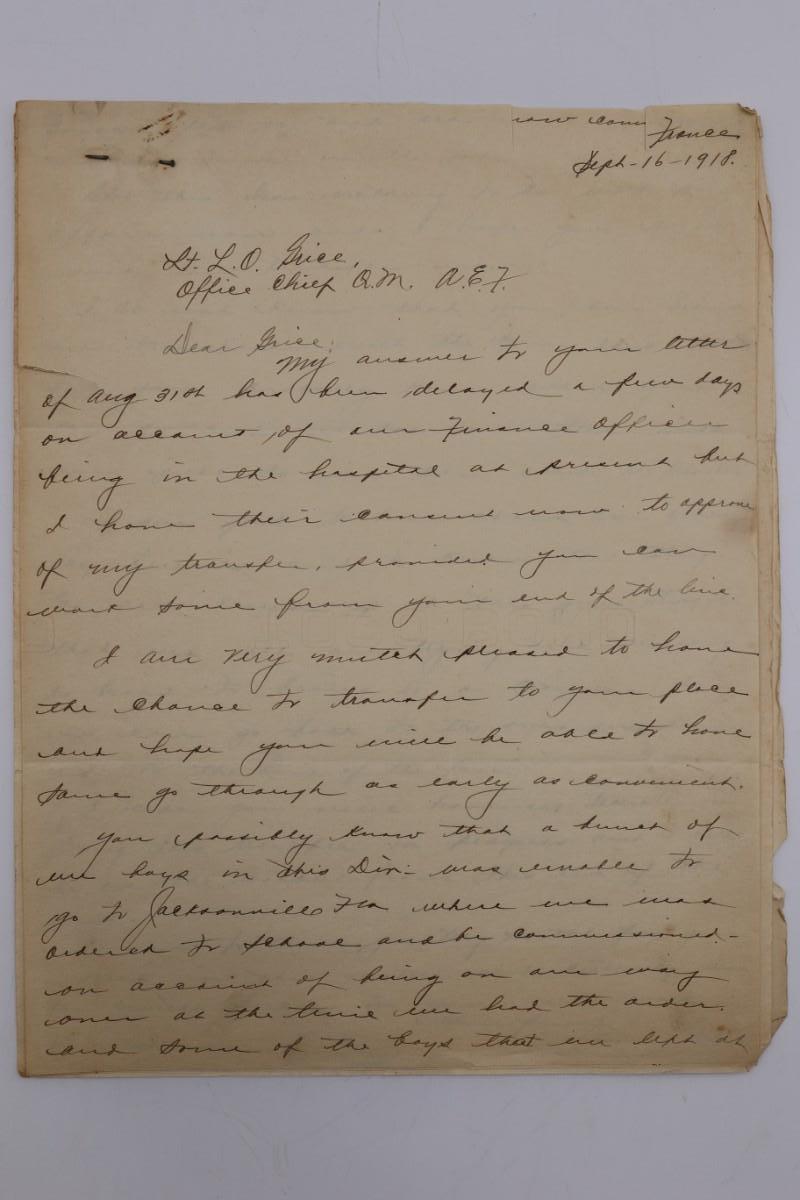 now com
France
Sept-16-1918.
Lt. L. O. Grice,
Office Chief Q.M. A.E.F.
Dear Grice:
My answer to your letter
of Aug 31st has been delayed a few days
on account of our Finance Officer
being in the hospital at present but
I have their consent now to approve
of my transfer, provided you can
work same from your end of the line.
I am very mutch pleased to have
the chance to transfer to your place
and hope you will be able to have
same go through as early as convenient.
You possibly know that a bunch of
us boys in this Div- was unable to
go to Jacksonville Fla where we was
ordered to school and be commissioned-
on account of being on our way
over at the time we had the order.
and some of the boys that we left at